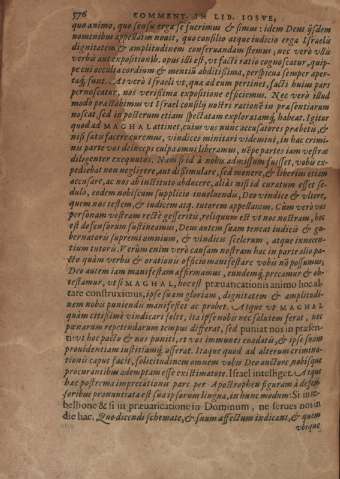 576 COMMENT. IN LIB. IOSVE,
quo animo, quo sensu erga se fuerimus & simus idem Deus ijsdem
nominibus appellatim nouit, quo consilio atque iudicio erga Israelis
dignitatem & amplitudinem conseruandam stemus, nec verò vllis
verbis aut expositionib. opus illi est, vt facti ratio cognoscatur, quip-
pe cui occulta cordium & mentiū abditissima, perspicua semper aper-
taq́; sunt. At verò Israeli vt, qua ad eum pertinet, facti huius pars
pernoscatur, nos verissima expositione efficimus. Nec verò illud
modo præstabimus vt Israel consilij nostri rationē in præsentiarum
noscat, sed in posterum etiam spectatam exploratamq́; habeat. Igitur
quod ad MAGHAL attinet, cuius vos nunc accusatores præbetis, &
nisi satis fecerimus, vindices minitari videmini, in hac crimi-
nis parte vos deinceps culpa omni liberamus, nēpe partes iam vestras
diligenter exequutos. Nam si id à nobis admissum fuisset, vobis ex-
pediebat non negligere, aut dissimulare, sed monere, & liberius etiam
accusare, ac nos ab instituto abducere, alià nisi id curatum esset se-
dulo, eadem nobiscum supplicia incurrendis. Deo vindice & vltore,
quem nos testem, & iudicem atq. tutorem appellamus. Cùm verò vos
personam vestram rectè gesseritis, reliquum est vt nos nostram, hoc
est defensorum sustineamus, Deus autem suam teneat iudicis & gu-
bernatoris supremi omnium, & vindicis scelerum, atque innocen-
tium tutoris. Verùm enim verò causam nostram hac in parte alio pa-
cto quàm verbis & orationis officio manifestare vobis nō possumus,
Deo autem iam manifestam affirmamus, eundemq́; precamur & ob-
testamur, vt si MAGHAL, hoc est præuaricationis animo hoc al-
tare construximus, ipse suam gloriam, dignitatem & amplitudi-
nem nobis puniendis manifestet ac probet. Atque vt MAGHAL
quàm citissimè vindicari solet, ita ipse nobis nec salutem ferat, nec
pœnarum repetendarum tempus differat, sed puniat nos in præsen-
ti vt hoc pacto & nos puniti, res vt immunes euadatis, & ipse suam
prouidentiam iustitiamq́; asserat. Itaque quod ad alterum crimina-
tionis caput facit, solicitudinem omnem vobis Deo auctore nobisque
procurantibus ademptam esse existimatote. Israel intelliget. Atque
hac postrema imprecationis pars per Apostrophen figuram à defen-
soribus pronuntiata est sua ipsorum lingua, in hunc modum: Si in re-
bellione & si in præuaricatione in Dominum, ne serues nos in
die hac. Quo dicendi schemate, & suum affectum indicant, & quem
vbique